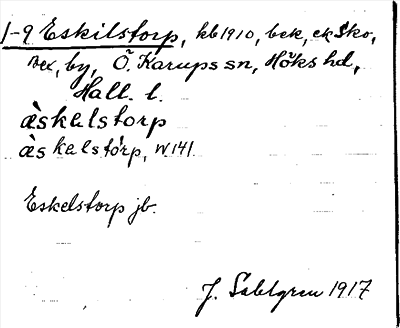 1-9 Eskilstorp, kb 1910, bek, ek Sko,
by, Ö. Karups sn, Höks hd,
Hall. l.
àskalstorp
às kalstórp, W 141
Eskelstorp jb.
J. Sahlgren 1917